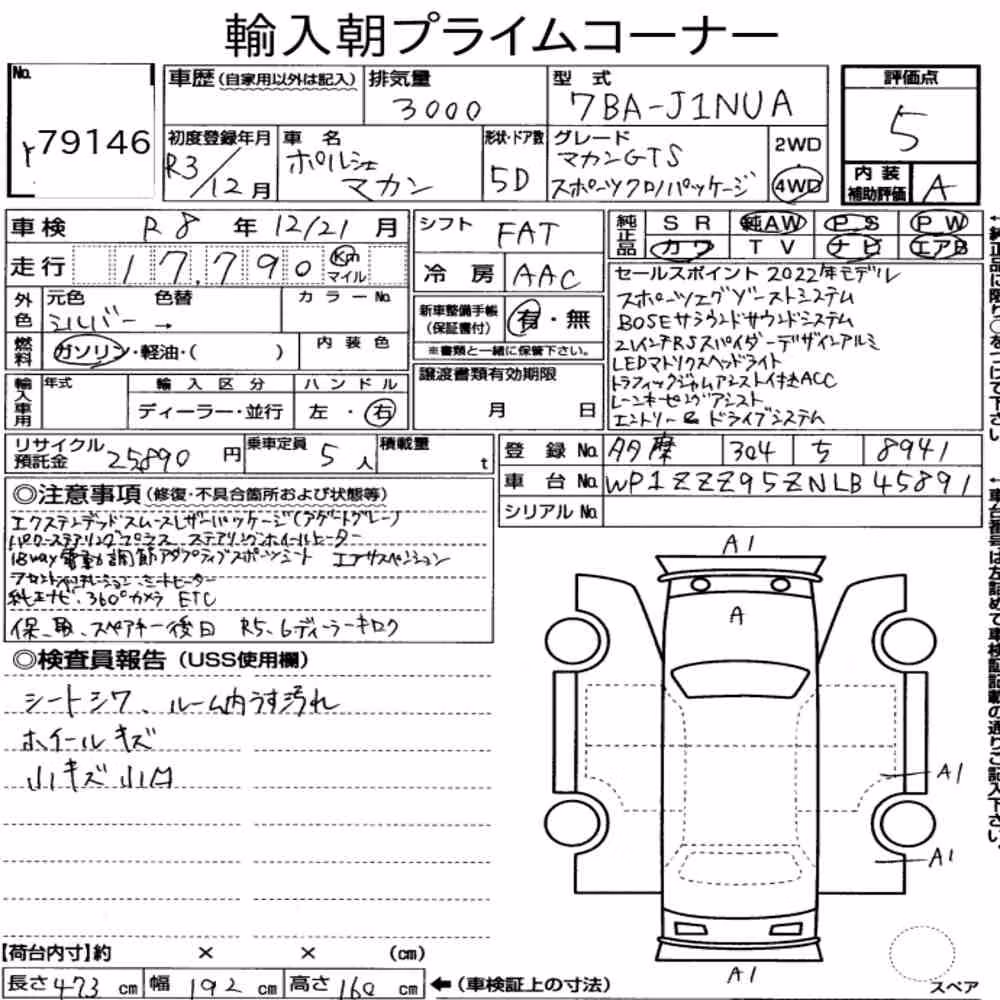 輸入朝プライムコーナー
No.
79146
車歴(自家用以外は記入)
排気量
3000
型 式
7BA-J1NUA
評価点
5
初度登録年月
R3/12月
車 名
ポルシェ
マカン
形状・ドア数
5D
グレード
マカンGTS
スポーツクロノパッケージ
2WD
4WD
内 装
補助評価
A
車検 R8 年 12/21 月
走行 17,790 Km
マイル
シフト FAT
冷 房 AAC
純正品
SR 純AW PS PW
カワ TV ナビ エアB
外色
元色 色替
シルバー →
カラーNo.
燃料
ガソリン・軽油・( )
内 装 色
新車整備手帳
(保証書付)
有・無
※書類と一緒に保管下さい。
セールスポイント 2022年モデル
スポーツエグゾーストシステム
BOSEサラウンドサウンドシステム
21インチRSスパイダーデザインアルミ
LEDマトリクスヘッドライト
トラフィックジャムアシスト付きACC
レーンキーピングアシスト
エントリー&ドライブシステム
輸入車用
年式
輸 入 区 分
ディーラー・並行
ハ ン ド ル
左 ・ 右
譲渡書類有効期限
月 日
リサイクル
預託金
25890 円
乗車定員
5 人
積載量
t
登 録 No. 多摩 304 ち 8941
車 台 No. WP1ZZZ95ZNLB45891
シリアル No.
◎注意事項(修復・不具合箇所および状態等)
エクステンデッドスムースレザーパッケージ(アゲートグレー)
パワーステアリングプラス ステアリングホイールヒーター
18way電動調節アダプティブスポーツシート エアサスペンション
フロントベンチレーション シートヒーター
純正ナビ・360°カメラ ETC
保、取、スペアキー後日 R5.6ディーラーキロク
◎検査員報告(USS使用欄)
シートシワ、ルーム内うす汚れ
ホイールキズ
小キズ小凹
A1
A
A1
A1
A1
【荷台内寸】約 × × (cm)
長さ 473 cm 幅 192 cm 高さ 160 cm
←(車検証上の寸法)
スペア
↑純正品に限り○をつけて下さい。
↑車台番号は左詰めで車検証記載の通りご記入下さい。